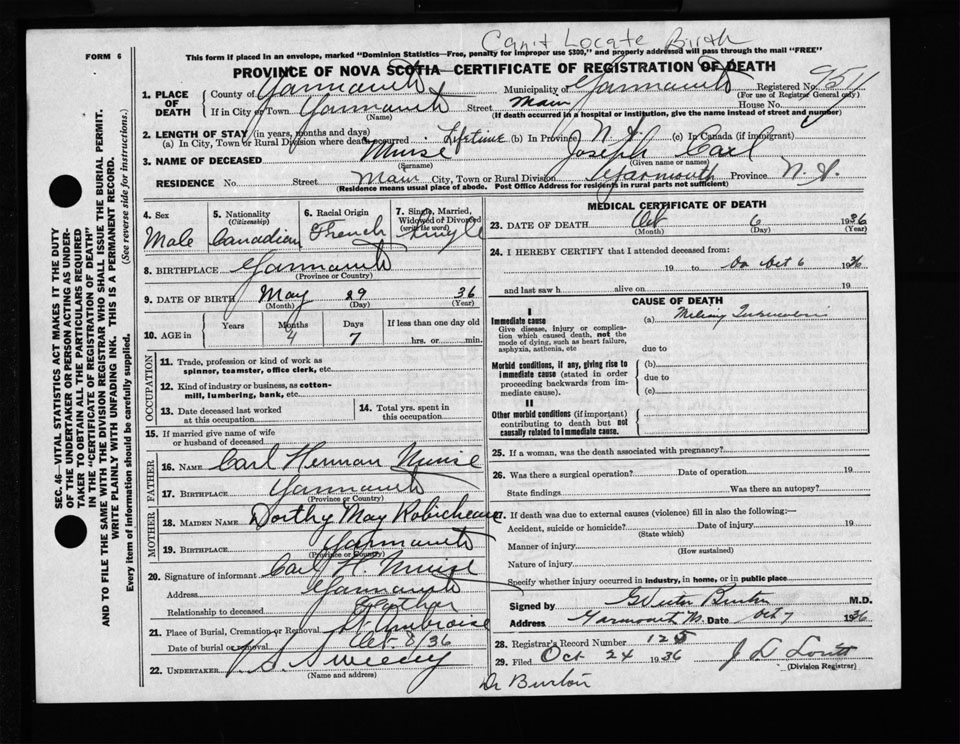 Can't Locate Birth
FORM 6
This form if placed in an envelope, marked "Dominion Statistics—Free, penalty for improper use $300," and properly addressed will pass through the mail "FREE"
PROVINCE OF NOVA SCOTIA—CERTIFICATE OF REGISTRATION OF DEATH
1. PLACE OF DEATH
County of Yarmouth Municipality of Yarmouth Registered No.
(For use of Registrar General only)
If in City or Town Yarmouth Street Main House No.
(Name) (If death occurred in a hospital or institution, give the name instead of street and number)
2. LENGTH OF STAY (in years, months and days)
(a) In City, Town or Rural Division where death occurred Lifetime (b) In Province N. S. (c) In Canada (if immigrant)
3. NAME OF DECEASED Muise Joseph Carl
(Surname) (Given name or names)
RESIDENCE No. Street Main City, Town or Rural Division Yarmouth Province N. S.
(Residence means usual place of abode. Post Office Address for residents in rural parts not sufficient)
4. Sex Male
5. Nationality (Citizenship) Canadian
6. Racial Origin French
7. Single, Married, Widowed or Divorced (write the word) Single
8. BIRTHPLACE Yarmouth
(Province or Country)
9. DATE OF BIRTH May 29 36
(Month) (Day) (Year)
10. AGE in Years Months Days If less than one day old
4 7 hrs. or min.
OCCUPATION
11. Trade, profession or kind of work as spinner, teamster, office clerk, etc.
12. Kind of industry or business, as cotton-mill, lumbering, bank, etc.
13. Date deceased last worked at this occupation
14. Total yrs. spent in this occupation
15. If married give name of wife or husband of deceased
FATHER
16. NAME Carl Herman Muise
17. BIRTHPLACE Yarmouth
(Province or Country)
MOTHER
18. MAIDEN NAME Dorthy May Robicheau
19. BIRTHPLACE Yarmouth
(Province or Country)
20. Signature of informant Carl H. Muise
Address Yarmouth
Relationship to deceased Father
21. Place of Burial, Cremation or Removal St. Ambroise
Date of burial or removal Oct. 8/36
22. UNDERTAKER V. S. Sweeny
(Name and address)
MEDICAL CERTIFICATE OF DEATH
23. DATE OF DEATH Oct 6 1936
(Month) (Day) (Year)
24. I HEREBY CERTIFY that I attended deceased from:
19 to Oct 6 1936
and last saw h alive on 19
CAUSE OF DEATH
I
Immediate cause (a) Miliary Tuberculosis
Give disease, injury or complication which caused death, not the mode of dying, such as heart failure, asphyxia, asthenia, etc
due to
Morbid conditions, if any, giving rise to immediate cause (stated in order proceeding backwards from immediate cause).
(b)
due to
(c)
II
Other morbid conditions (if important) contributing to death but not causally related to immediate cause.
25. If a woman, was the death associated with pregnancy?
26. Was there a surgical operation? Date of operation 19
State findings Was there an autopsy?
27. If death was due to external causes (violence) fill in also the following:—
Accident, suicide or homicide? Date of injury 19
(State which)
Manner of injury
(How sustained)
Nature of injury
Specify whether injury occurred in industry, in home, or in public place
Signed by Burton M.D.
Address Yarmouth Date Oct 7 1936
28. Registrar's Record Number 125
29. Filed Oct 24 1936
(Division Registrar)
Dr Burton
SEC. 46—VITAL STATISTICS ACT MAKES IT THE DUTY
OF THE UNDERTAKER OR PERSON ACTING AS UNDER-
TAKER TO OBTAIN ALL THE PARTICULARS REQUIRED
IN THE "CERTIFICATE OF REGISTRATION OF DEATH"
AND TO FILE THE SAME WITH THE DIVISION REGISTRAR WHO SHALL ISSUE THE BURIAL PERMIT.
WRITE PLAINLY WITH UNFADING INK. THIS IS A PERMANENT RECORD.
Every item of information should be carefully supplied. (See reverse side for instructions.)